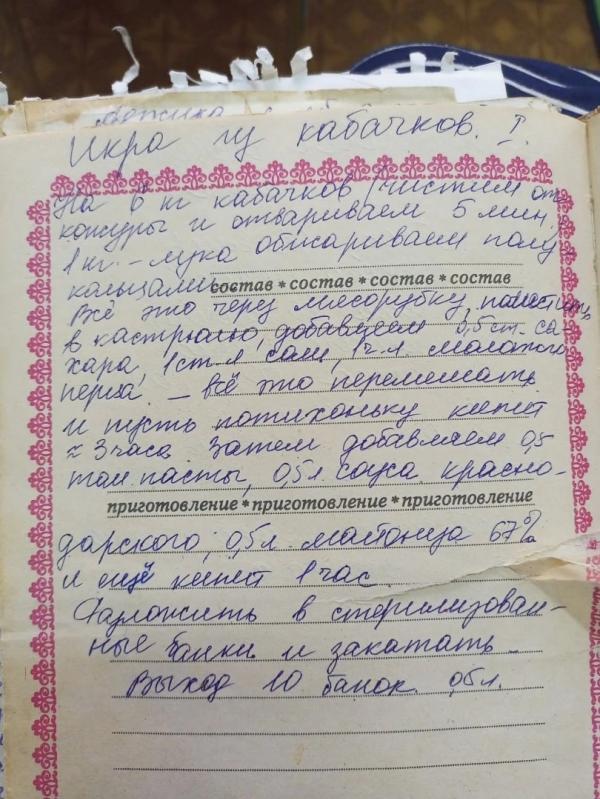 Икра из кабачков. I.
На 6 кг кабачков (чистим от
кожуры и отвариваем 5 мин,
1 кг. – лука обжариваем полу
кольцами.
состав * состав * состав * состав
Всё это через мясорубку, поместить
в кастрюлю, добавляем 0,5 ст. са-
хара, 1 ст. л. соли, 1 ч. л. молотого
перца, – всё это перемешать
и пусть потихоньку кипит
≈ 3 часа. Затем добавляем 0,5
том. пасты, 0,5 л. соуса красно-
приготовление * приготовление * приготовление
дарского, 0,5 л. майонеза 67%
и ещё кипит 1 час.
Разложить в стерилизован-
ные банки и закатать.
Выход 10 банок 0,5 л.